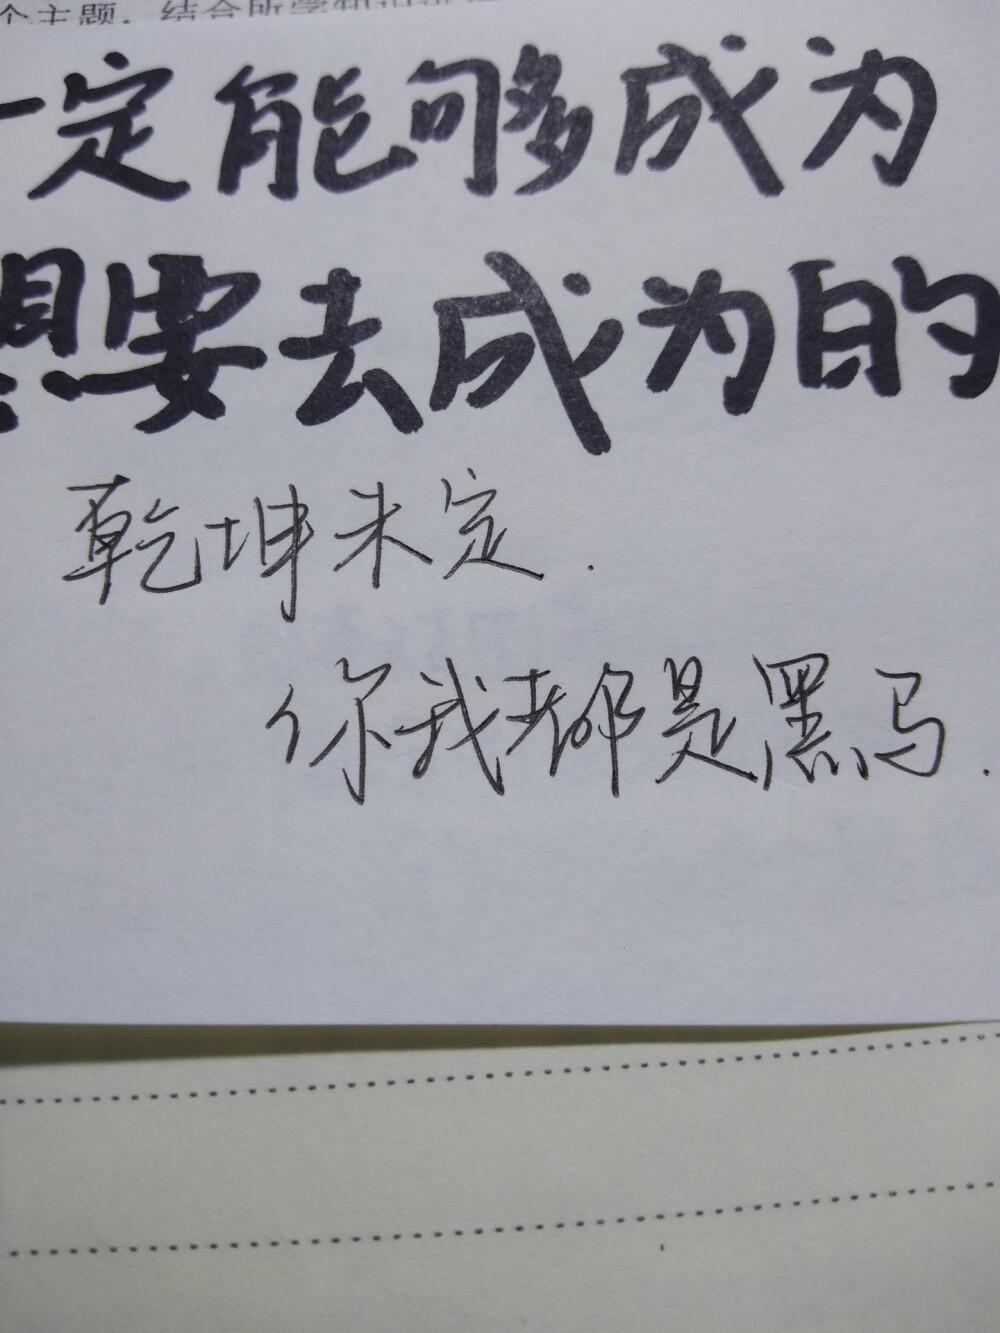 个主题，结合所学知识
一定能够成为
想要去成为的
乾坤未定.
你我都是黑马.